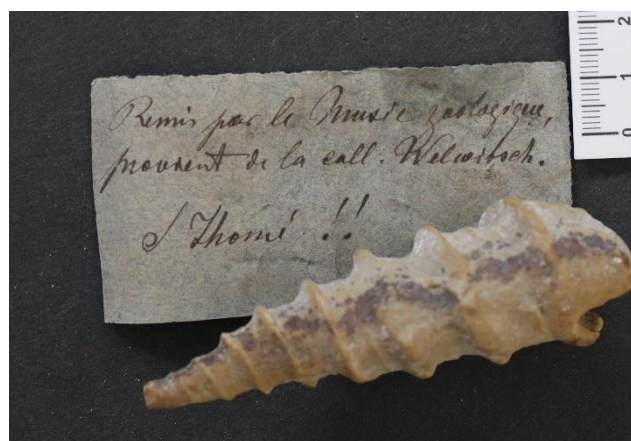 Remis par le Musée zoologique,
provient de la coll. Welwitsch.
S Thomé !!
2
1
0